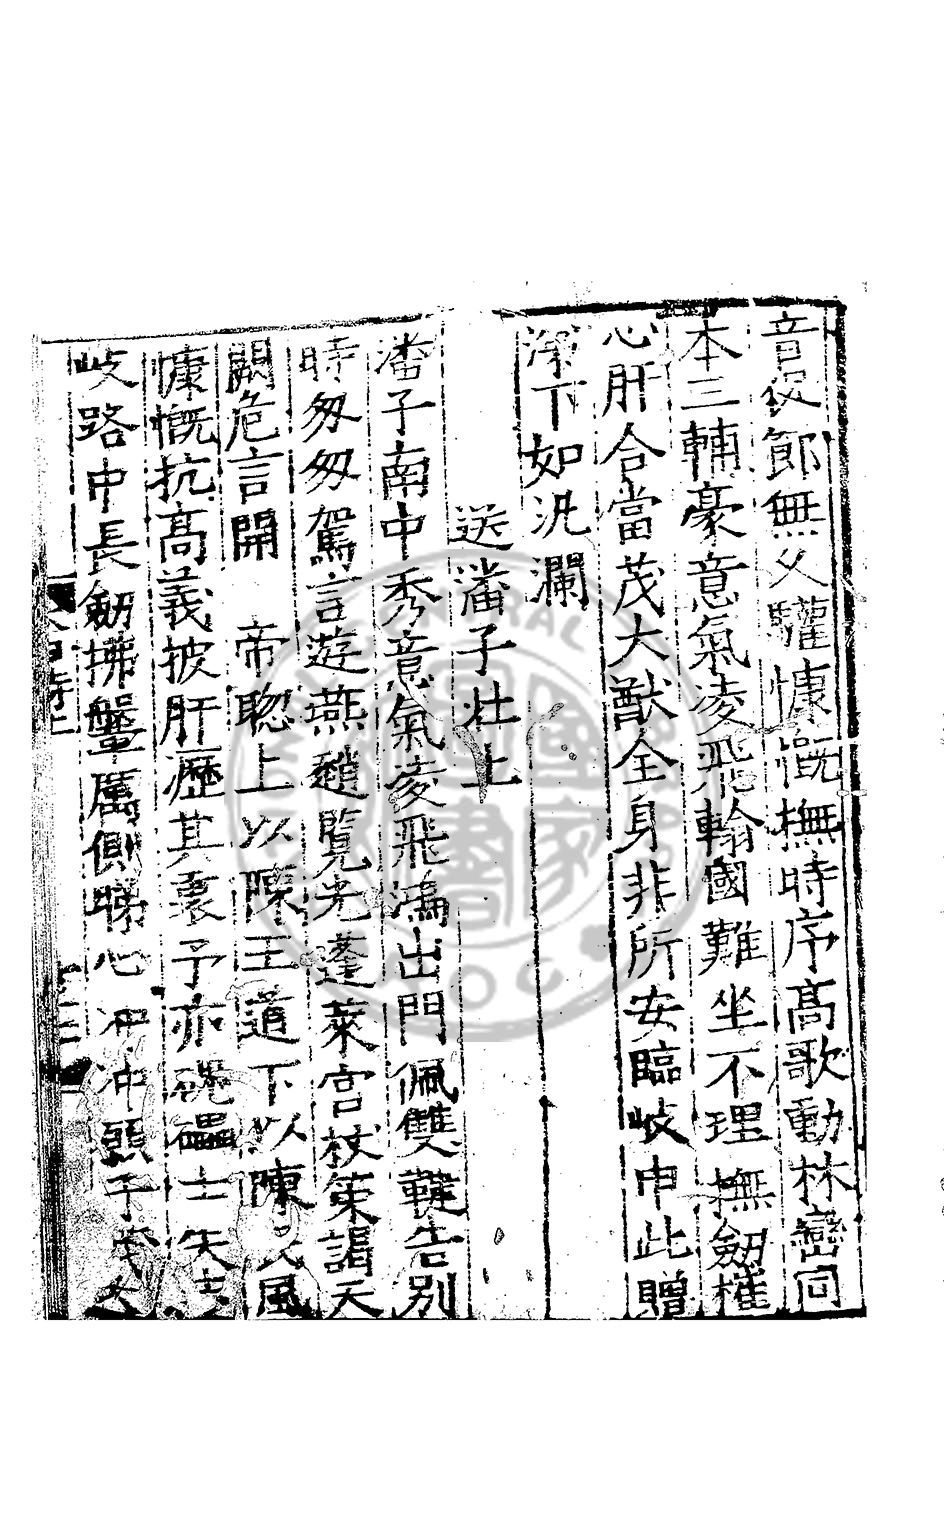 音促節無久驩慷慨撫時序高歌動林巒同
本三輔豪意氣凌飛翰國難坐不理撫劒摧
心肝合當茂大猷全身非所安臨岐申此贈
下如汎瀾
送潘子壯上
潘子南中秀意氣凌飛鴻出門佩雙鞬告別
時匆匆駕言遊燕趙覽光蓬萊宮杖策謁天
闕危言開 帝聰上以陳王道下以陳 風
慷慨抗高義披肝瀝其衷予亦磈礧士失
岐路中長劒拂盤厲側睇心冲冲願子
NATIONAL CENTRAL LIBRARY
國家圖書